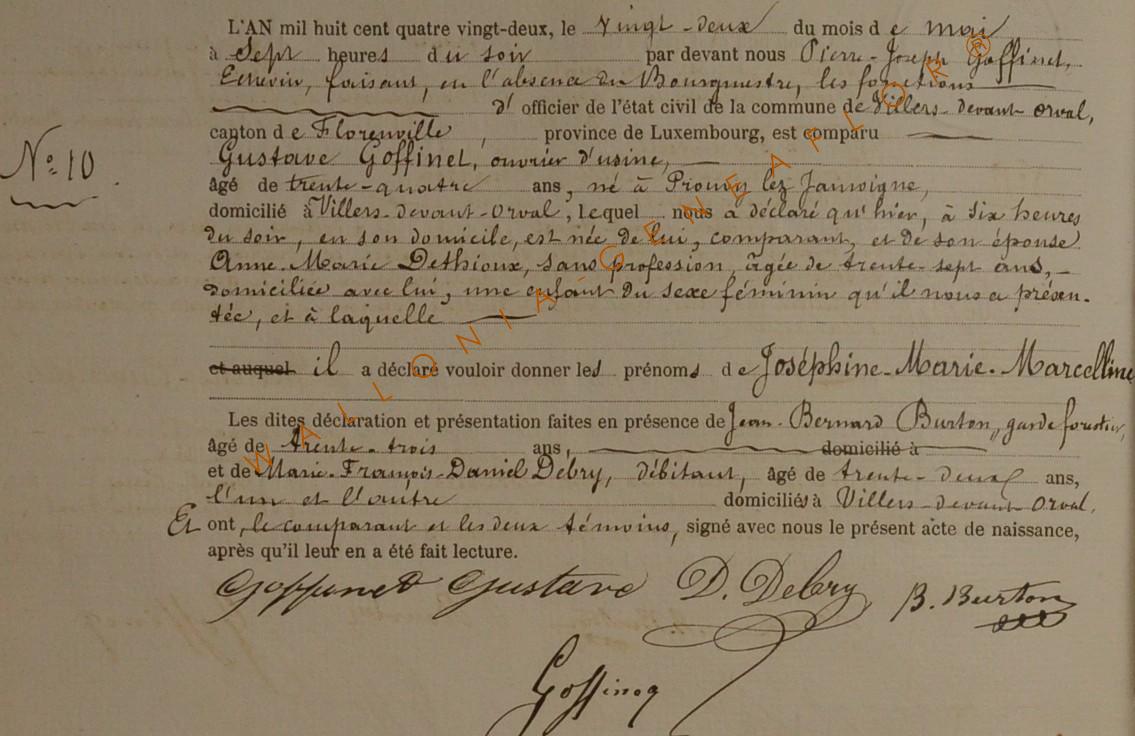 L'AN mil huit cent quatre vingt-deux, le vingt-deux du mois de mai
à Sept heures du soir par devant nous Pierre-Joseph Goffinet,
Echevin, faisant, en l'absence du Bourgmestre, les fonctions
d'officier de l'état civil de la commune de Villers-devant-Orval,
canton de Florenville, province de Luxembourg, est comparu
Nº 10
Gustave Goffinet, ouvrier d'usine,
âgé de trente-quatre ans, né à Prouvy lez Jamoigne,
domicilié à Villers-devant-Orval, lequel nous a déclaré qu'hier, à six heures
du soir, en son domicile, est née de lui, comparant, et de son épouse
Anne-Marie Dethioux, sans profession, âgée de trente-sept ans,
domiciliée avec lui, une enfant du sexe féminin qu'il nous a présen-
tée, et à laquelle
et auquel il a déclaré vouloir donner les prénoms de Joséphine-Marie-Marcelline
Les dites déclaration et présentation faites en présence de Jean-Bernard Burton, garde forestier,
âgé de trente-trois ans, domicilié à
et de Marie-François-Daniel Debry, débitant, âgé de trente-deux ans,
l'un et l'autre domiciliés à Villers-devant-Orval.
Et ont, le comparant et les deux témoins, signé avec nous le présent acte de naissance,
après qu'il leur en a été fait lecture.
Goffinet Gustave D. Debry B. Burton
WALLONIA GENEAFLOR®